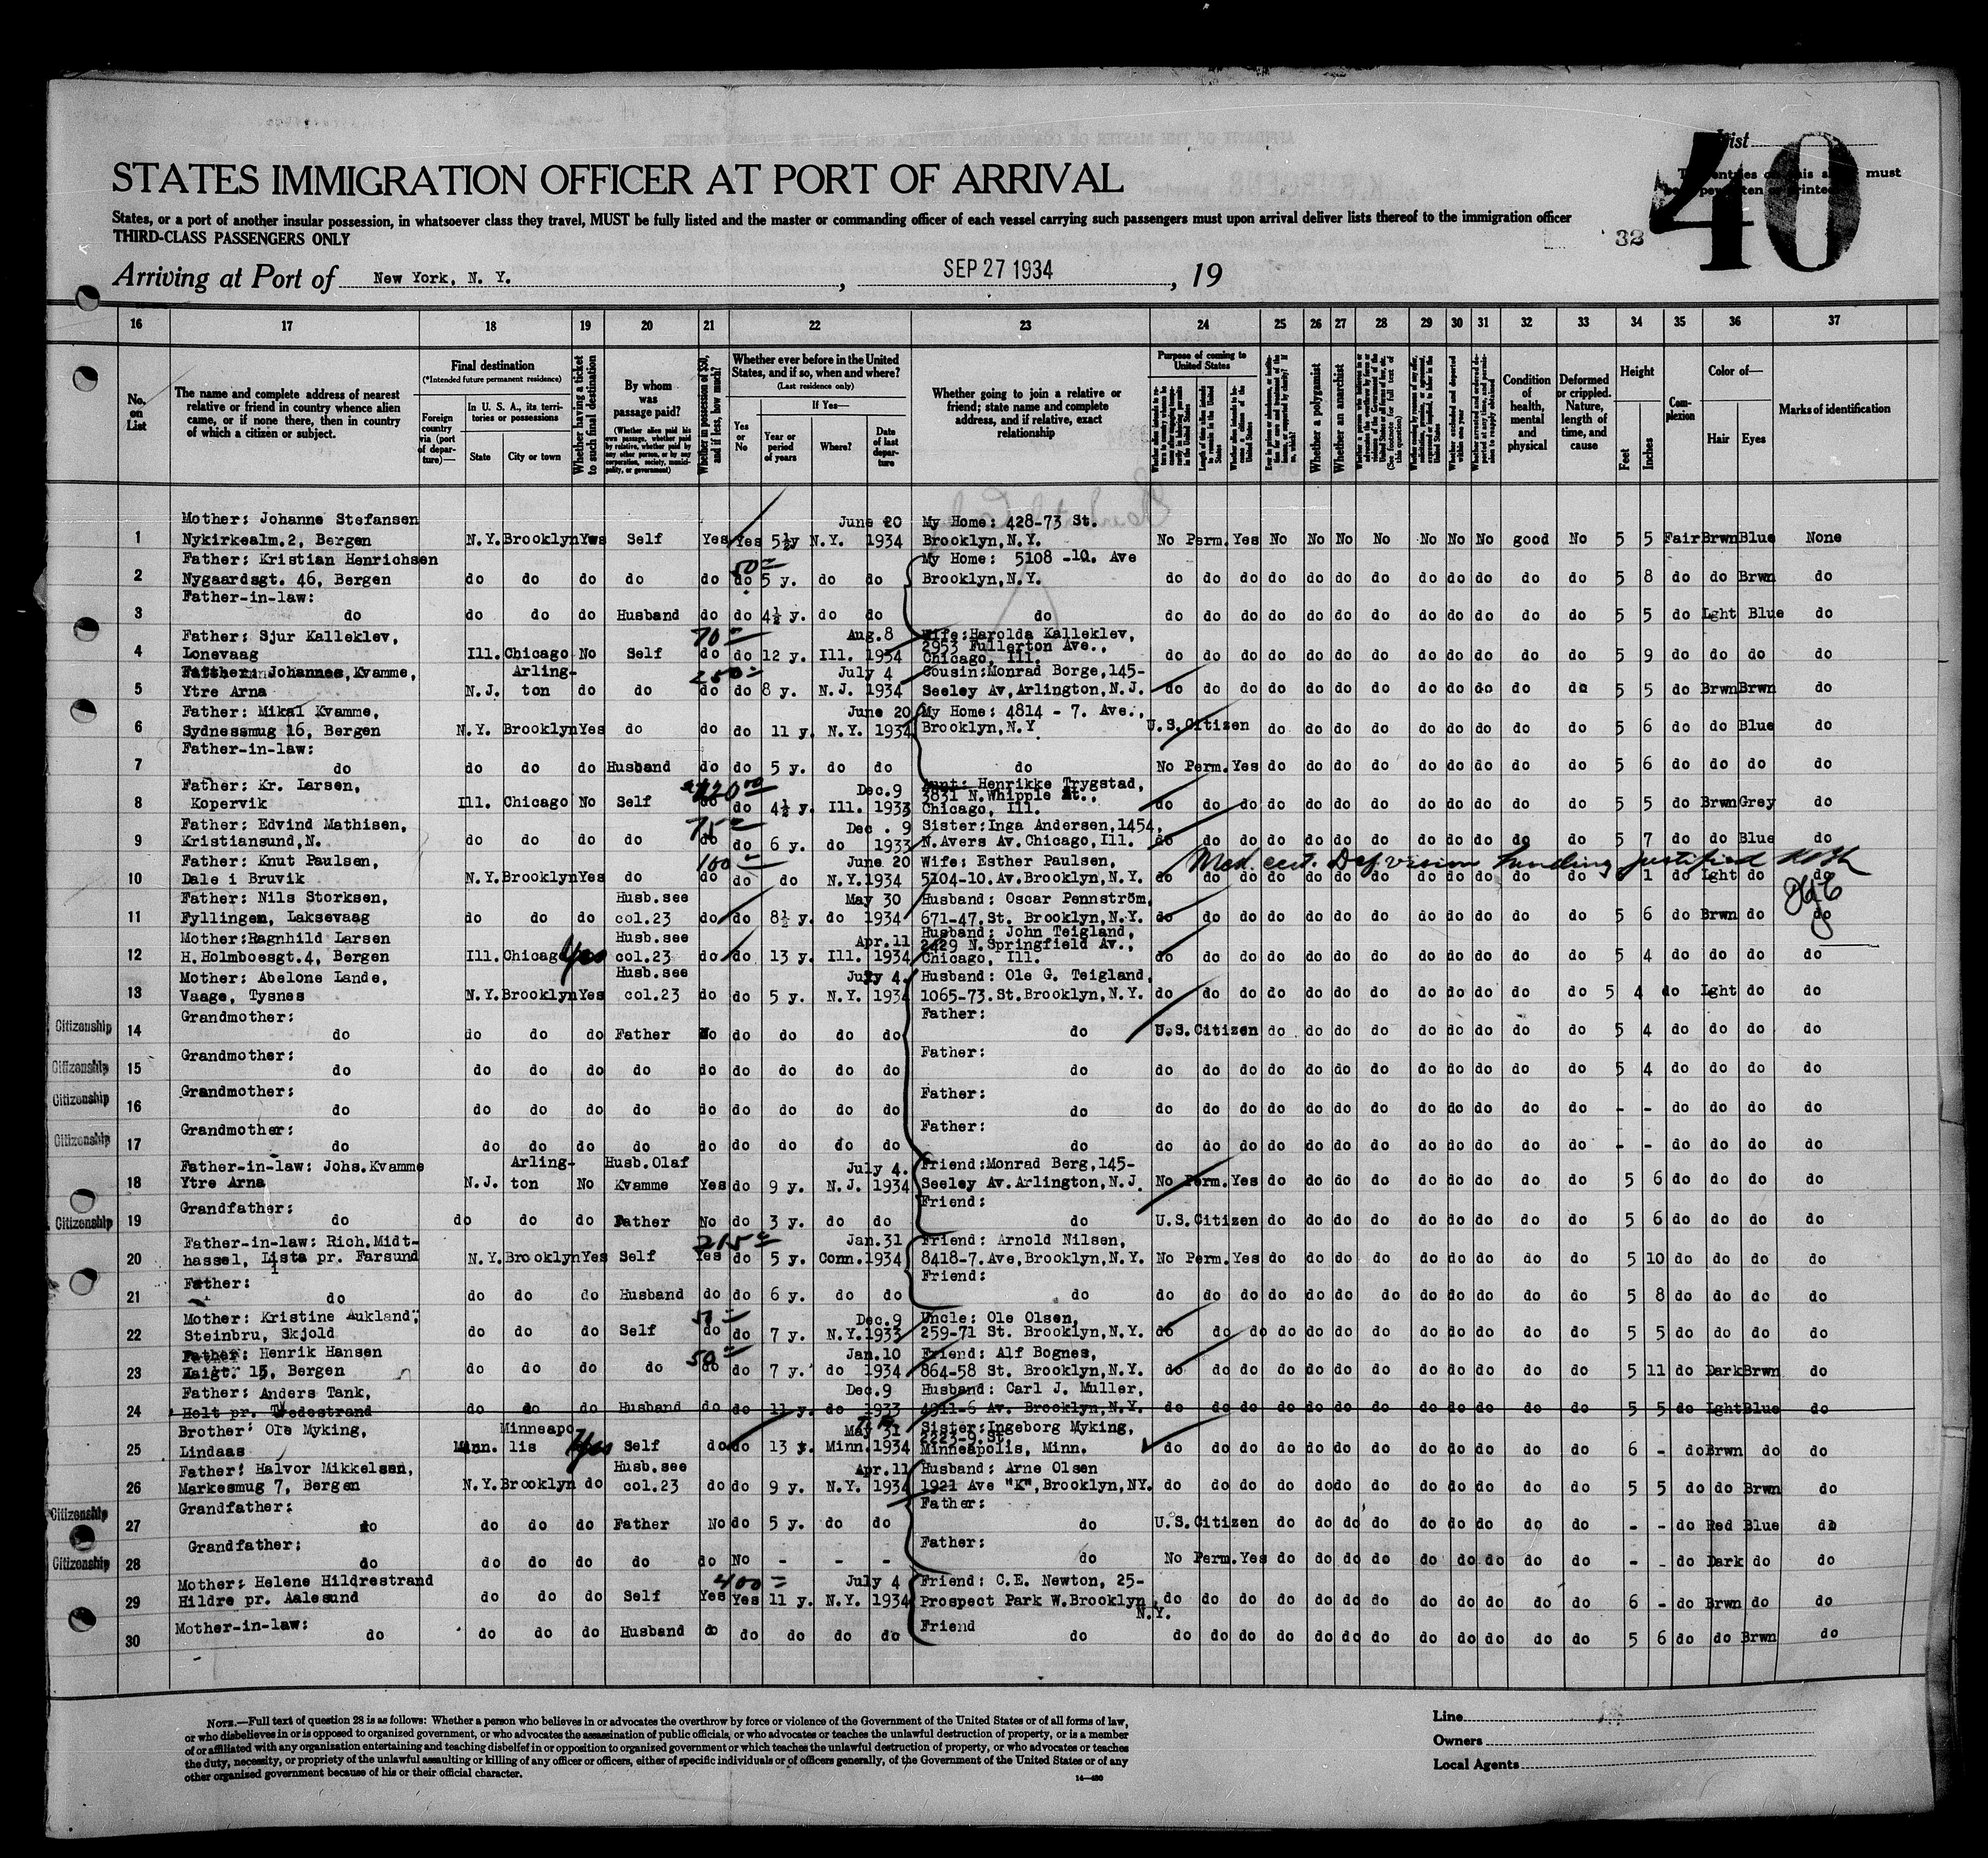 List
40
The entries on this sheet must
be typewritten or printed
STATES IMMIGRATION OFFICER AT PORT OF ARRIVAL
States, or a port of another insular possession, in whatsoever class they travel, MUST be fully listed and the master or commanding officer of each vessel carrying such passengers must upon arrival deliver lists thereof to the immigration officer
THIRD-CLASS PASSENGERS ONLY
32
Arriving at Port of New York, N. Y. , SEP 27 1934 , 19
16 17 18 19 20 21 22 23 24 25 26 27 28 29 30 31 32 33 34 35 36 37
No. on List
The name and complete address of nearest relative or friend in country whence alien came, or if none there, then in country of which a citizen or subject.
Final destination
(*Intended future permanent residence)
Foreign country via (port of departure)—
In U. S. A., its territories or possessions
State City or town
Whether having a ticket to such final destination
By whom was passage paid?
(Whether alien paid his own passage, whether paid by relative, whether paid by any other person, or by any corporation, society, municipality, or government)
Whether in possession of $50, and if less, how much?
Whether ever before in the United States, and if so, when and where?
(Last residence only)
If Yes—
Yes or No
Year or period of years
Where?
Date of last departure
Whether going to join a relative or friend; state name and complete address, and if relative, exact relationship
Purpose of coming to United States
Length of time alien intends to remain in the United States
Whether a polygamist
Whether an anarchist
Condition of health, mental and physical
Deformed or crippled. Nature, length of time, and cause
Height
Feet Inches
Complexion
Color of—
Hair Eyes
Marks of identification
Mother: Johanne Stefansen June 20 My Home: 428-73 St.
1 Nykirkealm.2, Bergen N.Y. Brooklyn Yes Self Yes Yes 5½y N.Y. 1934 Brooklyn,N.Y. No Perm. Yes No No No No No No No good No 5 5 Fair Brwn Blue None
Father: Kristian Henrichsen 50= My Home: 5108 -10. Ave
2 Nygaardsgt. 46, Bergen do do do do do do 5 y. do do Brooklyn,N.Y. do do do do do do do do do do do do 5 8 do do Brwn do
Father-in-law:
3 do do do do Husband do do 4½ y. do do do do do do do do do do do do do do do 5 5 do Lght Blue do
Father: Sjur Kalleklev, 70= Aug.8 Wife:Harolda Kalleklev,
2953 Fullerton Ave.,
4 Lonevaag Ill. Chicago No Self do do 12 y. Ill. 1934 Chicago, Ill. do do do do do do do do do do do do 5 9 do do do do
Father: Johannes, Kvamme, Arling- 250= July 4 Cousin:Monrad Borge,145-
5 Ytre Arna N.J. ton do do do do 8 y. N.J. 1934 Seeley Av,Arlington,N.J. do do do do do do do do do do do do 5 5 do Brwn Brwn do
Father: Mikal Kvamme, June 20 My Home: 4814 - 7. Ave.,
6 Sydnessmug 16, Bergen N.Y. Brooklyn Yes do do do 11 y. N.Y. 1934 Brooklyn,N.Y U.S.Citizen do do do do do do do do do 5 6 do do Blue do
Father-in-law:
7 do do do do Husband do do 5 y. do do do No Perm. Yes do do do do do do do do do 5 6 do do do do
Father: Kr. Larsen, 120= Dec.9 Aunt: Henrikke Trygstad,
3831 N.Whipple St.,
8 Kopervik Ill. Chicago No Self do do 4½ y. Ill. 1933 Chicago, Ill. do do do do do do do do do do do do 5 5 do Brwn Grey do
Father: Edvind Mathisen, 75= Dec . 9 Sister:Inga Andersen,1454,
9 Kristiansund,N. do do do do do do 6 y. do 1933 N.Avers Av.Chicago,Ill. do do do do do do do do do do do do 5 7 do do Blue do
Father: Knut Paulsen, 100= June 20 Wife: Esther Paulsen, Med. cert. Def. vision landing justified
10 Dale i Bruvik N.Y. Brooklyn Yes do do do do N.Y. 1934 5104-10.Av.Brooklyn,N.Y. do do do do do do do do do do do do 6 1 do Lght do do
Father: Nils Storksen, Husb.see May 30 Husband: Oscar Pennström,
11 Fyllingen, Laksevaag do do do col.23 do do 8½ y. do 1934 671-47.St. Brooklyn,N.Y. do do do do do do do do do do do do 5 6 do Brwn do do
Mother:Ragnhild Larsen Husb.see Apr.11 Husband: John Teigland,
2429 N.Springfield Av.,
12 H.Holmboesgt.4, Bergen Ill. Chicago Yes col.23 do do 13 y. Ill. 1934 Chicago, Ill. do do do do do do do do do do do do 5 4 do do do do
Mother: Abelone Lande, Husb.see July 4. Husband: Ole G. Teigland,
13 Vaage, Tysnes N.Y. Brooklyn Yes col.23 do do 5 y. N.Y. 1934 1065-73.St.Brooklyn,N.Y. do do do do do do do do do do do do 5 4 do Lght do do
Grandmother: Father:
Citizenship 14 do do do do Father No do do do do do U.S.Citizen do do do do do do do do do 5 4 do do do do
Grandmother: Father:
Citizenship 15 do do do do do do do do do do do do do do do do do do do do do do do 5 4 do do do do
Grandmother: Father:
Citizenship 16 do do do do do do do do do do do do do do do do do do do do do do do - - do do do do
Grandmother: Father:
Citizenship 17 do do do do do do do do do do do do do do do do do do do do do do do - - do do do do
Father-in-law: Johs.Kvamme Arling- Husb.Olaf July 4. Friend:Monrad Berg,145-
18 Ytre Arna N.J. ton No Kvamme Yes do 9 y. N.J. 1934 Seeley Av.Arlington,N.J. No Perm. Yes do do do do do do do do do 5 6 do do do do
Grandfather: Friend:
Citizenship 19 do do do do Father No do 3 y. do do do U.S.Citizen do do do do do do do do do 5 6 do do do do
Father-in-law: Rich.Midt- 215= Jan.31 Friend: Arnold Nilsen,
20 hassel, Lista pr. Farsund N.Y. Brooklyn Yes Self Yes do 5 y. Conn. 1934 8418-7.Ave,Brooklyn,N.Y. No Perm. Yes do do do do do do do do do 5 10 do do do do
Father: Friend:
21 do do do do Husband do do 6 y. do do do do do do do do do do do do do do do 5 8 do do do do
Mother: Kristine Aukland, 50= Dec.9 Uncle: Ole Olsen,
22 Steinbru, Skjold do do do Self do do 7 y. N.Y. 1933 259-71 St. Brooklyn,N.Y. do do do do do do do do do do do do 5 5 do do do do
Father: Henrik Hansen 50= Jan.10 Friend: Alf Bognes,
23 Maigt. 15, Bergen do do do do do do 7 y. do 1934 864-58 St. Brooklyn,N.Y. do do do do do do do do do do do do 5 11 do Dark Brwn do
Father: Anders Tank, Dec.9 Husband: Carl J. Muller,
24 Holt pr. Tvedestrand do do do Husband do do 11 y. do 1933 4911-6 Av. Brooklyn,N.Y. do do do do do do do do do do do do 5 5 do Lght Blue do
Brother: Ole Myking, Minneapo- May 31 Sister:Ingeborg Myking,
2223-9.St.
25 Lindaas Minn. lis Yes Self do do 13 y. Minn. 1934 Minneapolis, Minn. do do do do do do do do do do do do 6 - do Brwn do do
Father: Halvor Mikkelsen, Husb.see Apr.11 Husband: Arne Olsen
26 Markesmug 7, Bergen N.Y. Brooklyn do col.23 do do 9 y. N.Y. 1934 1921 Ave "K",Brooklyn,NY. do do do do do do do do do do do do 5 5 do do Brwn do
Grandfather: Father:
Citizenship 27 do do do do Father No do 5 y. do do do U.S.Citizen do do do do do do do do do - - do Red Blue do
Grandfather: Father:
Citizenship 28 do do do do do do No - - - do No Perm. Yes do do do do do do do do do - - do Dark do do
Mother: Helene Hildrestrand 400= July 4 Friend: C.E. Newton, 25-
29 Hildre pr. Aalesund do do do Self Yes Yes 11 y. N.Y. 1934 Prospect Park W.Brooklyn, do do do do do do do do do do do do 6 - do Brwn do do
N.Y.
Mother-in-law: Friend
30 do do do do Husband do do do do do do do do do do do do do do do do do do 5 6 do do Brwn do
NOTE.—Full text of question 28 is as follows: Whether a person who believes in or advocates the overthrow by force or violence of the Government of the United States or of all forms of law,
or who disbelieves in or is opposed to organized government, or who advocates the assassination of public officials, or who advocates or teaches the unlawful destruction of property, or is a member
of or affiliated with any organization entertaining and teaching disbelief in or opposition to organized government or which teaches the unlawful destruction of property, or who advocates or teaches
the duty, necessity, or propriety of the unlawful assaulting or killing of any officer or officers, either of specific individuals or of officers generally, of the Government of the United States or of any
other organized government because of his or their official character.
14—480
Line
Owners
Local Agents